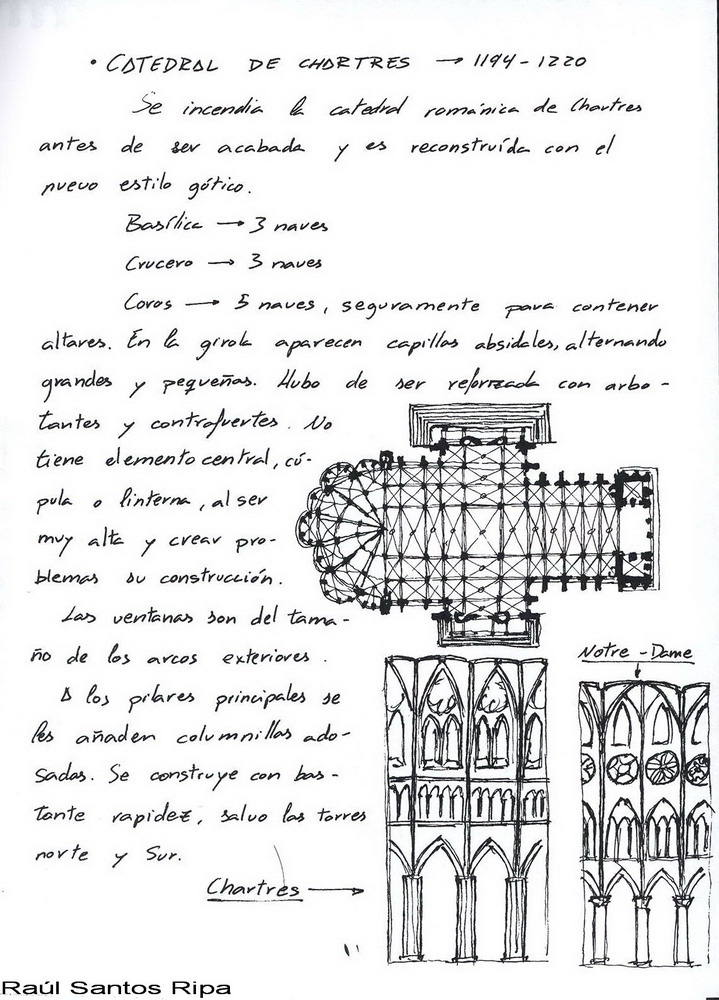 • CATEDRAL DE CHARTRES → 1194-1220
Se incendia la catedral románica de Chartres
antes de ser acabada y es reconstruída con el
nuevo estilo gótico.
Basílica → 3 naves
Crucero → 3 naves
Coros → 5 naves, seguramente para contener
altares. En la girola aparecen capillas absidales, alternando
grandes y pequeñas. Hubo de ser reforzada con arbo-
tantes y contrafuertes. No
tiene elemento central, cú-
pula o linterna, al ser
muy alta y crear pro-
blemas su construcción.
Las ventanas son del tama-
ño de los arcos exteriores.
A los pilares principales se
les añaden columnillas ado-
sadas. Se construye con bas-
tante rapidez, salvo las torres
norte y Sur.
Chartres →
Notre-Dame
Raúl Santos Ripa